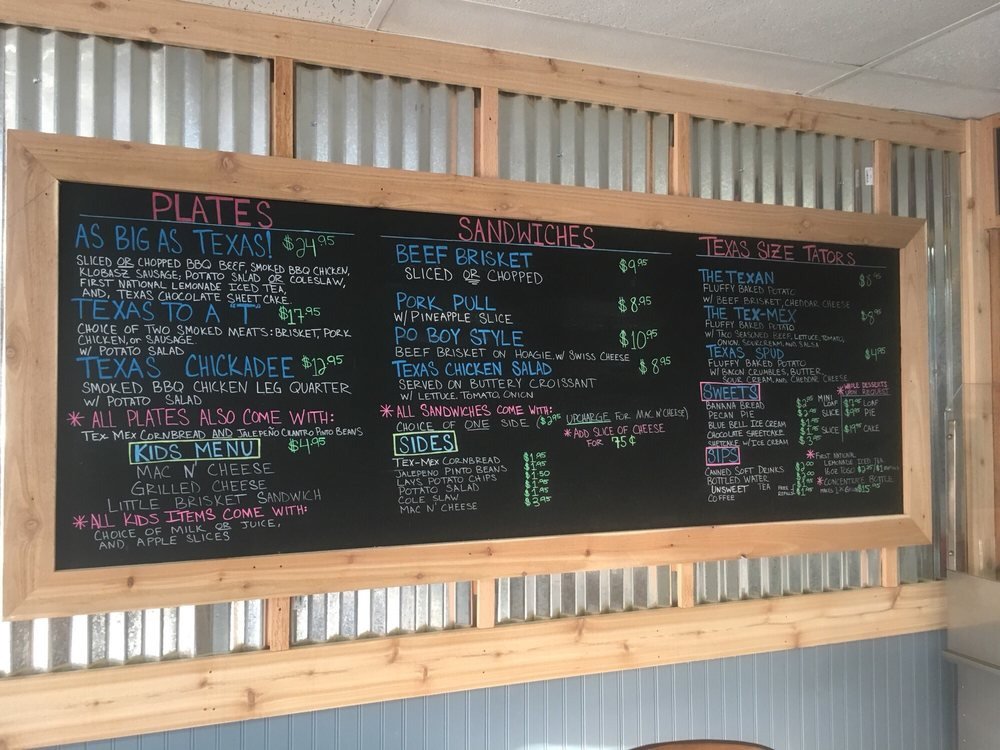 PLATES
AS BIG AS TEXAS! $24.95
SLICED OR CHOPPED BBQ BEEF, SMOKED BBQ CHICKEN,
KLOBASZ SAUSAGE, POTATO SALAD OR COLESLAW,
FIRST NATIONAL LEMONADE ICED TEA,
AND, TEXAS CHOCOLATE SHEET CAKE.
TEXAS TO A "T" $17.95
CHOICE OF TWO SMOKED MEATS: BRISKET, PORK
CHICKEN, OR SAUSAGE
W/ POTATO SALAD
TEXAS CHICKADEE $12.95
SMOKED BBQ CHICKEN LEG QUARTER
W/ POTATO SALAD
* ALL PLATES ALSO COME WITH:
TEX-MEX CORNBREAD AND JALEPEÑO CILANTRO PINTO BEANS
KIDS MENU $4.95
MAC N' CHEESE
GRILLED CHEESE
LITTLE BRISKET SANDWICH
* ALL KIDS ITEMS COME WITH:
CHOICE OF MILK OR JUICE,
AND APPLE SLICES
SANDWICHES
BEEF BRISKET $9.95
SLICED OR CHOPPED
PORK PULL $8.95
W/ PINEAPPLE SLICE
PO BOY STYLE $10.95
BEEF BRISKET ON HOAGIE W/ SWISS CHEESE
TEXAS CHICKEN SALAD $8.95
SERVED ON BUTTERY CROISSANT
W/ LETTUCE, TOMATO, ONION
* ALL SANDWICHES COME WITH:
CHOICE OF ONE SIDE ($2.95 UPCHARGE FOR MAC N' CHEESE)
* ADD SLICE OF CHEESE
FOR 75¢
SIDES
TEX-MEX CORNBREAD
JALEPENO PINTO BEANS
LAYS POTATO CHIPS
POTATO SALAD
COLE SLAW
MAC N' CHEESE
TEXAS SIZE TATORS
THE TEXAN $8.95
FLUFFY BAKED POTATO
W/ BEEF BRISKET, CHEDDAR CHEESE
THE TEX-MEX $8.95
FLUFFY BAKED POTATO
W/ TACO SEASONED BEEF, LETTUCE, TOMATO,
ONION, SOURCREAM, AND SALSA
TEXAS SPUD $4.95
FLUFFY BAKED POTATO
W/ BACON CRUMBLES, BUTTER,
SOUR CREAM, AND CHEDDAR CHEESE
SWEETS
* WHOLE DESSERTS
UPON REQUEST
BANANA BREAD MINI LOAF LOAF
PECAN PIE SLICE PIE
BLUE BELL ICE CREAM
CHOCOLATE SHEETCAKE SLICE CAKE
SHEETCAKE W/ ICE CREAM
SIPS
CANNED SOFT DRINKS
BOTTLED WATER
UNSWEET TEA FREE REFILLS
COFFEE
* FIRST NATIONAL
LEMONADE ICED TEA
16OZ TOGO
* CONCENTRATE BOTTLE